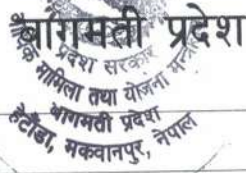 बागमती प्रदेश
प्रदेश सरकार
मामिला तथा योजना
बागमती प्रदेश
हेटौंडा, मकवानपुर, नेपाल